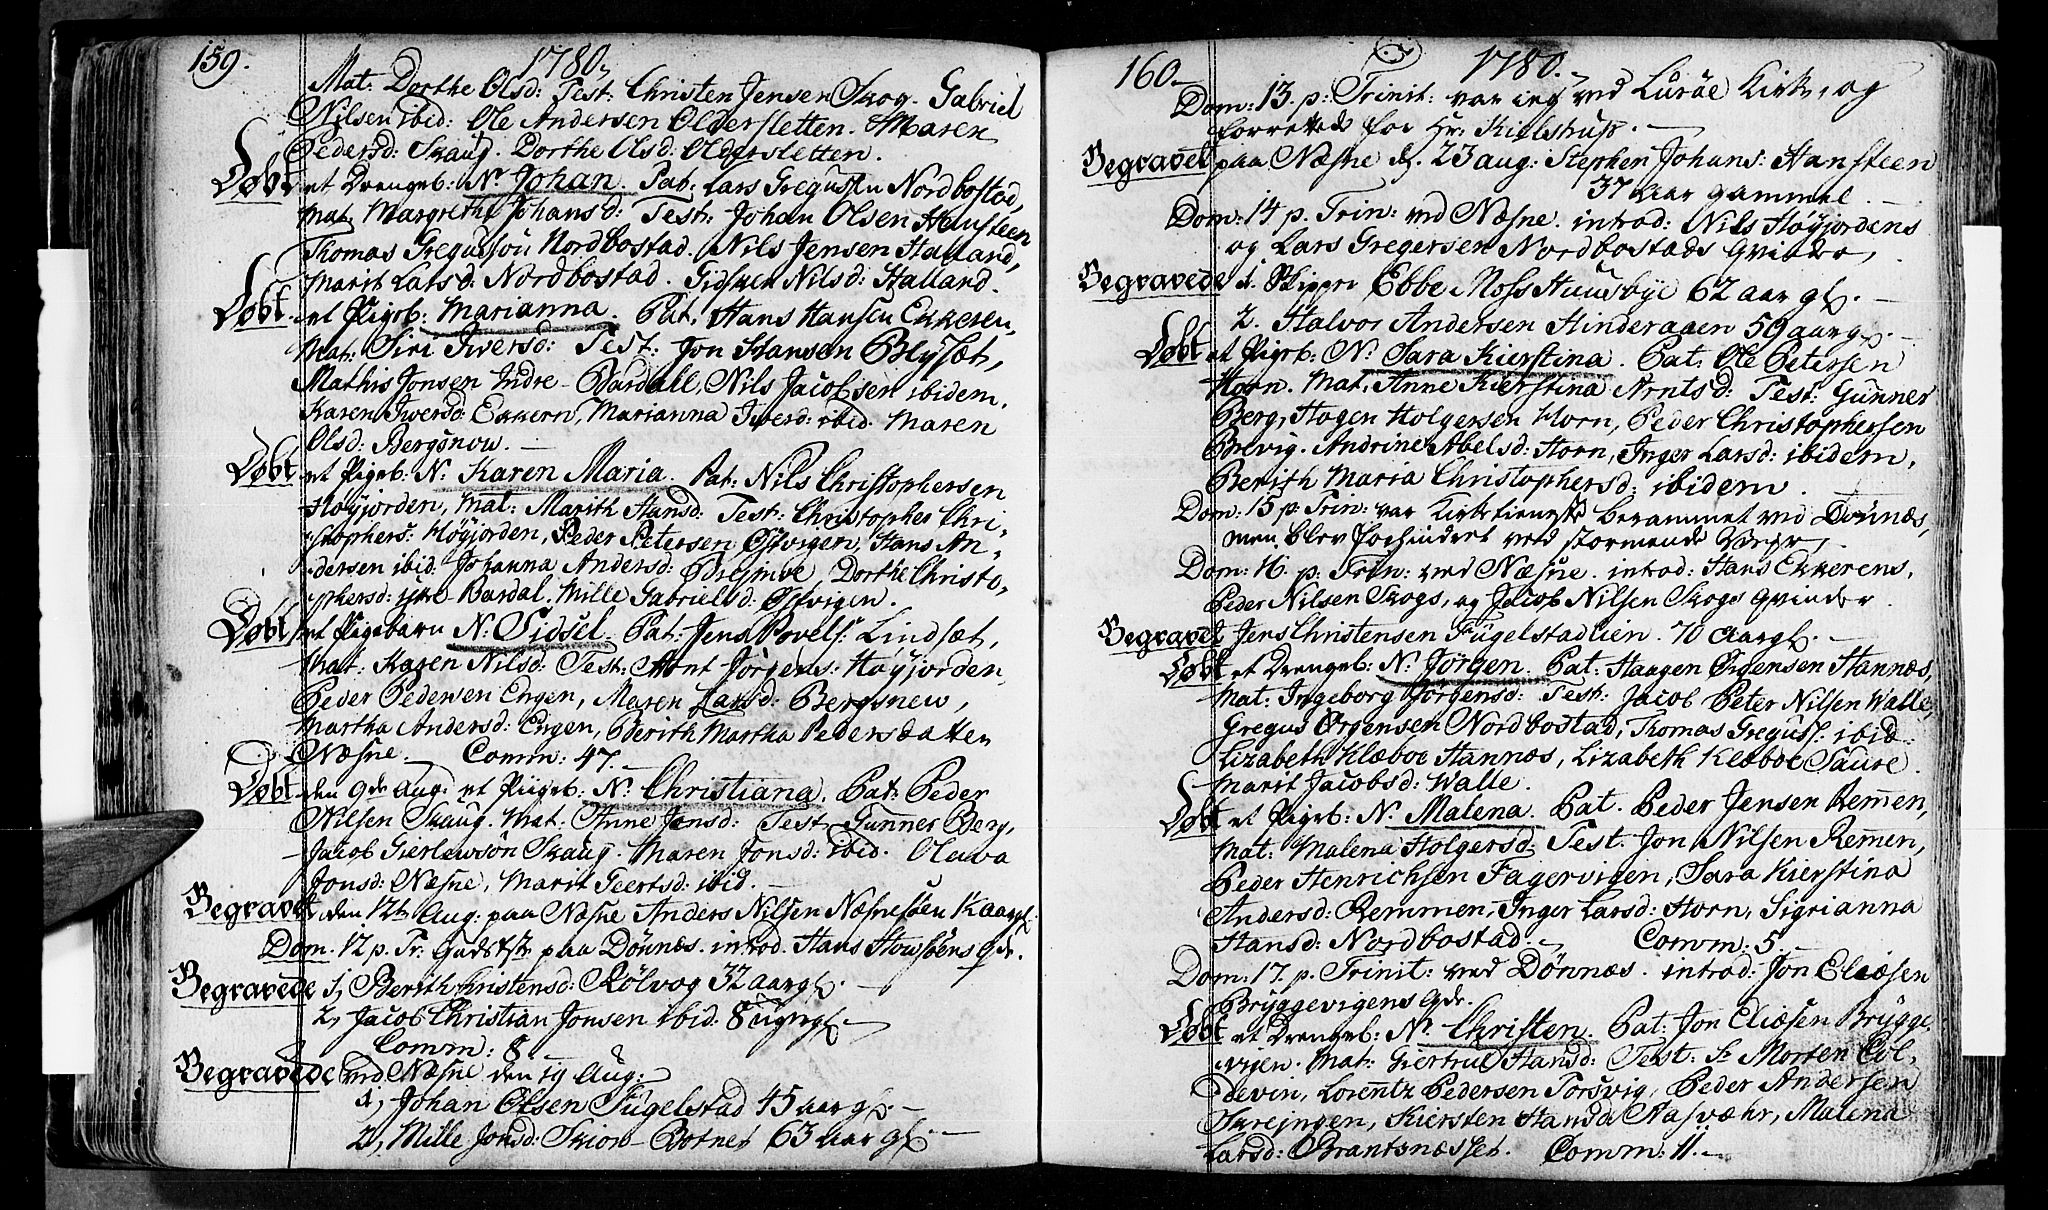 159.
1780
Mat: Dorthe Olsd: Test: Christen Jensen Skog. Gabriel
Nilsen ibid: Ole Andersen Oldersletten. Maren
Pedersd: Skaug. Dorthe Olsd: Oldersletten.
Døbt et Drengeb: N. Johan. Pat: Lars Gregussen Nordbostad,
Mat: Margrethe Johansd: Test: Johan Olsen Hensteen
Thomas Gregussøn Nordbostad. Nils Jensen Halland,
Marit Larsd: Nordbostad. Nilsd: Halland.
Døbt. et Pigeb: Marianna. Pat. Hans Hansen Ekkeren,
Mat: Siri Iwersd: Test: Jon Hansen Blysæt,
Mathis Jonsen Indre-Bardall, Nils Jacobsen ibidem.
Karen Iwersd: Ekkern, Marianna Iwersd: ibid. Maren
Olsd: Bergsnow.
Døbt et Pigeb: N. Karen Maria. Pat: Nils Christophersen
Høyjorden, Mat: Marith Hansd: Test: Christopher Chri-
stophers: Høyjorden, Peder Petersen Østvigen, Hans An-
dersen ibid. Johanna Andersd: Dorthe Christo-
phersd: Bardal. Mille Gabrielsd: Østvigen.
Døbt et Pigebarn N: Sidsel. Pat: Jens Povels: Lindsæt,
Mat: Karen Nilsd: Test: Arnt Jørgens: Høyjorden,
Peder Pedersen Engen, Maren Larsd: Bergsnew,
Martha Andersd: Engen, Berith Martha Pedersdatter
Næsne. Comm: 47.
Døbt den 9de Aug: et Piigeb: N: Christiana. Pat: Peder
Nilsen Skaug. Mat. Anne Jonsd: Test Gunner Berg,
Jacob Gierlewsøn Skaug. Maren Jonsd: ibid. Olava
Jonsd: Næsne, Marit Geertsd: ibid.
Begravet den 12te Aug: paa Næsne Anders Nilsen Næsnesøen 1½ aargl.
Dom. 12 p. Tr: Gudstst: paa Dønnes. introd. Hans Qde.
Begravede 1, Berith Christensd: Rølvog 32 aar gl.
2, Jacob Christian Jonsen ibid. 8 ugrgl.
Comm: 8
Begravede ved Næsne den 19 Aug:
1, Johan Olsen Fugelstad 45 aar gl.
2, Mille Jonsd: Skiow-Botnet 63 aar gl.
160
1780.
Dom: 13. p: Trinit: var ieg ved Lurøe Kirke, og
forrettede for Hr: Kielstrup.
Begravet paa Næsne d. 23 aug: Stephen Johans: Hansteen
37 aar gammel.
Dom: 14 p. Trin: ved Næsne. introd: Nils Høyjordens
og Lars Gregersen Nordbostads Qvinder,
Begravede 1. Skipper Ebbe Moss Huusbye 62 aar gl.
2. Halvor Andersen Hinderaaen 59 aargl.
Døbt et Pigeb: N. Sara Kierstina. Pat. Ole Petersen
Horn. Mat. Anne Kierstina Arntsd: Test: Gunner
Berg, Hogen Holgersen Horn, Peder Christophersen
Brevig. Andrine Abelsd: Horn, Inger Larsd: ibidem,
Berith Maria Christophersd: ibidem.
Dom: 15 p. Trin: var Kirketieneste berammet ved Dønnæs,
men blev forhindret ved stormende Vejr,
Dom: 16. p: Trin: ved Næsne. introd: Hans Ekkerens,
Peder Nilsen Skogs, og Jacob Nilsen Skogs Qvinder
Begravet Jens Christensen Fugelstadlien. 70 aargl.
Døbt et Drengeb: N. Jørgen. Pat. Haagen Ørgensen Hannæs,
Mat: Ingeborg Jørgensd: Test: Jacob Peter Nilsen Walle,
Gregus Ørgensen Nordbostad, Thomas Greguss. ibid:
Lizabeth Klæboe Hannæs, Lizabeth Klæboe Saure.
Marit Jacobsd: Walle.
Døbt et Pigeb: N. Malena. Pat. Peder Jensen Remen,
Mat: Malena Holgersd: Test. Jon Nilsen Remen,
Peder Henrichsen Fagervigen, Sara Kierstina
Andersd: Remmen, Inger Larsd: Horn, Sigrianna
Hansd: Nordbostad. Comm: 5.
Dom: 17. p. Trinit: ved Dønnæs. introd: Jon Eliæsen
Bryggevigens Qde.
Døbt et Drengeb: N. Christen. Pat: Jon Eliæsen Brygge
vigen. Mat: Giertrud Hansd: Test. Sr. Morten Col-
devin, Lorentz Pedersen Torsvig, Peder Andersen
Skrejngen, Kiersten Hansd: Rasvæhr, Malena
Larsd: Brantsnæsset. Comm: 11.